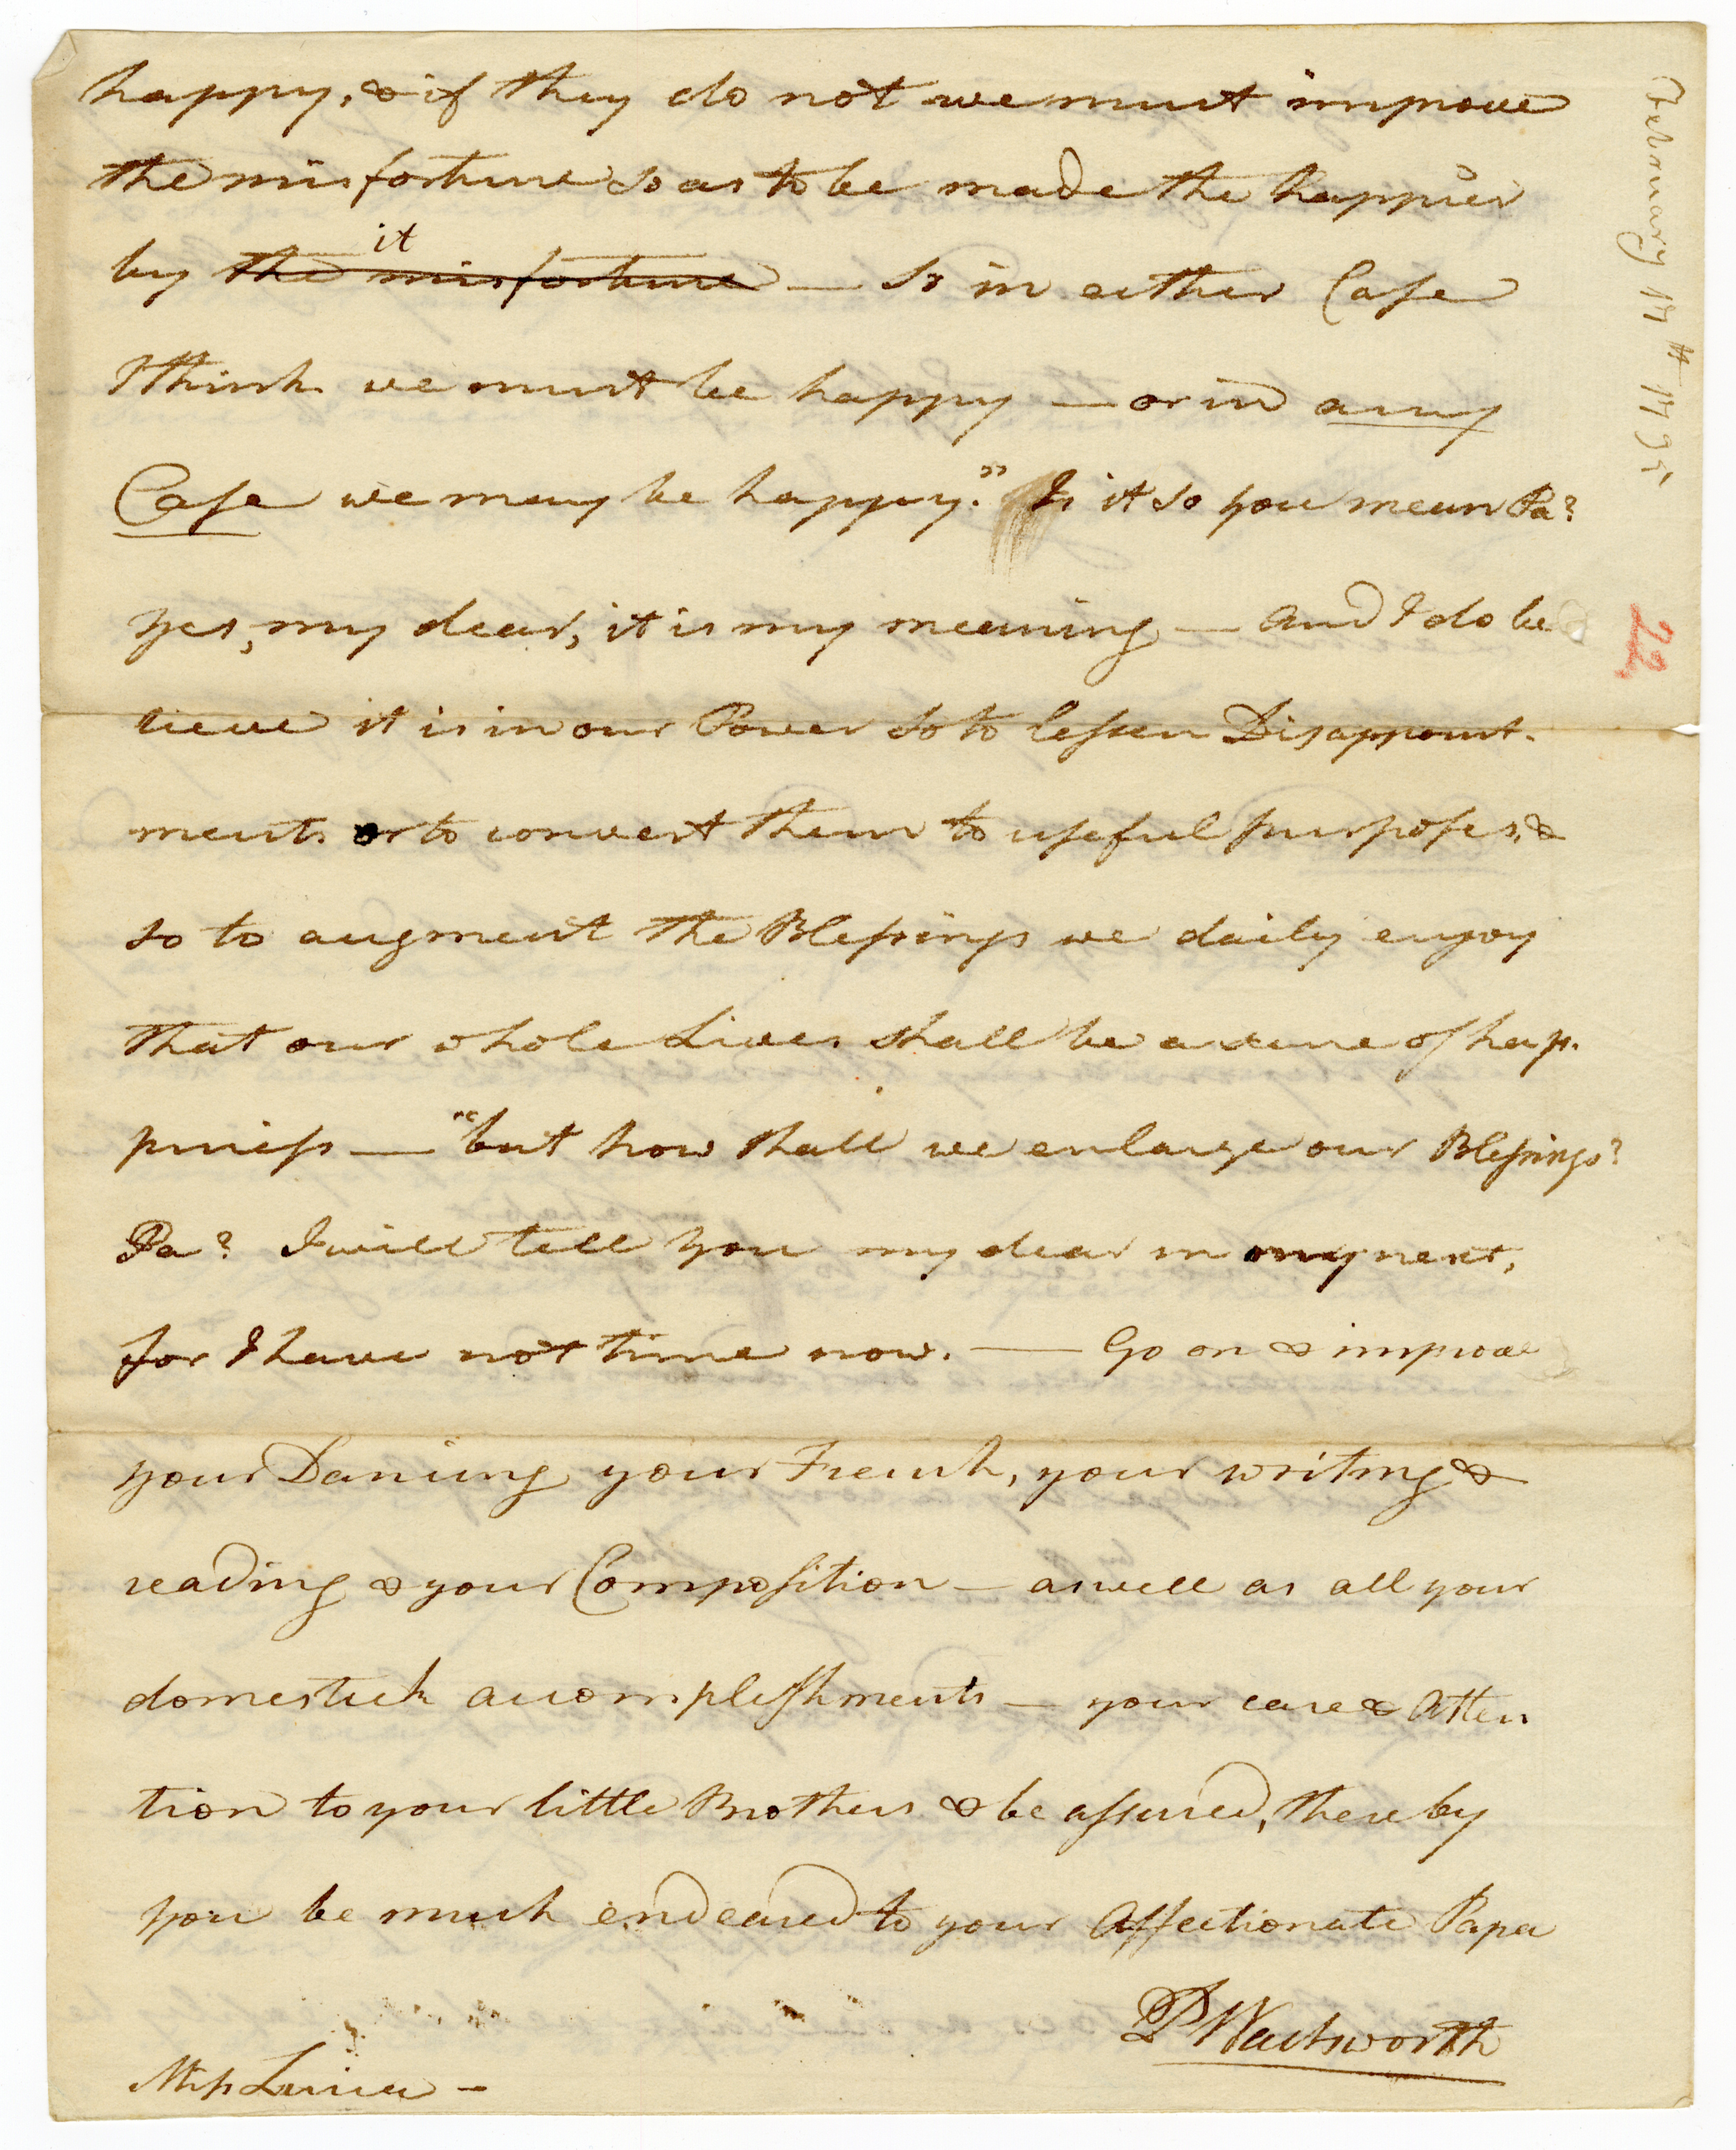 happy, & if they do not we must improve
the misfortune so as to be made the happier
by the misfortune it — So in either Case
I think we must be happy — or in any
Case we may be happy." Is it so you mean Pa?
yes, my dear, it is my meaning — and I do be
lieve it is in our Power so to lessen Disappoint-
ments or to convert them to useful purposes, &
so to augment the Blessings we daily enjoy
that our whole Lives shall be a scene of hap-
piness — "but how shall we enlarge our Blessings?
Pa? I will tell you my dear in my next,
for I have not time now. — Go on & improve
your Dancing your French, your writing &
reading & your Composition — as well as all your
domestick accomplishments — your care & Atten
tion to your little Brothers & be assured, thereby
you be much endeared to your Affectionate Papa
P Wadsworth
Miss Luisa —
February 17th 1795
22